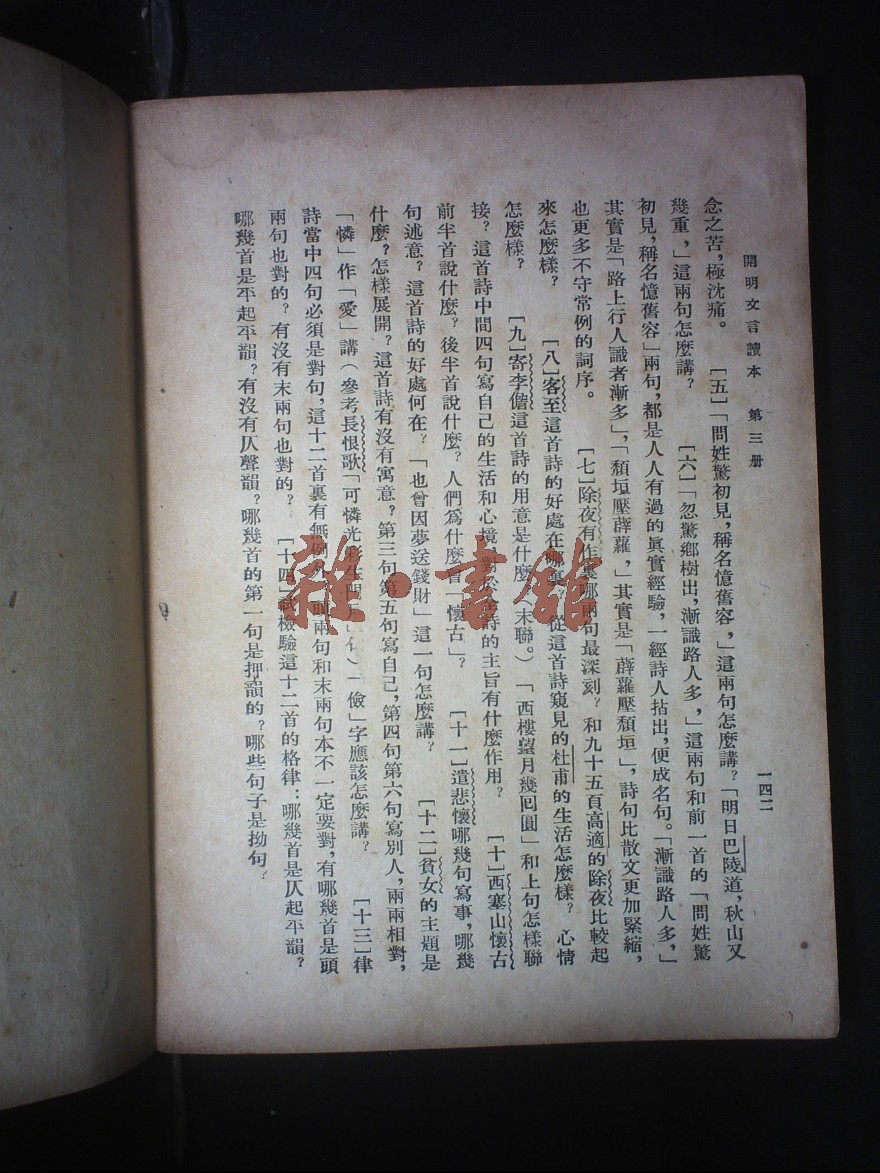 開明文言讀本　第三册
一四二
念之苦，極沈痛。　[五]「問姓驚初見，稱名憶舊容，」這兩句怎麼講？「明日巴陵道，秋山又
幾重，」這兩句怎麼講？　[六]「忽驚鄉樹出，漸識路人多，」這兩句和前一首的「問姓驚
初見，稱名憶舊容」兩句，都是人人有過的眞實經驗，一經詩人拈出，便成名句。「漸識路人多，」
其實是「路上行人識者漸多」，「頹垣壓薜蘿，」其實是「薜蘿壓頹垣」，詩句比散文更加緊縮，
也更多不守常例的詞序。　[七]除夜有作裏哪兩句最深刻？和九十五頁高適的除夜比較起
來怎麼樣？　[八]客至這首詩的好處在哪裏？從這首詩窺見的杜甫的生活怎麼樣？心情
怎麼樣？　[九]寄李儋這首詩的用意是什麼？（末聯。）「西樓望月幾囘圓」和上句怎樣聯
接？這首詩中間四句寫自己的生活和心境，對於全詩的主旨有什麼作用？　[十]西塞山懷古
前半首說什麼？後半首說什麼？人們爲什麼會「懷古」？　[十一]遣悲懷哪幾句寫事，哪幾
句述意？這首詩的好處何在？「也曾因夢送錢財」這一句怎麼講？　[十二]貧女的主題是
什麼？怎樣展開？這首詩有沒有寓意？第三句第五句寫自己，第四句第六句寫別人，兩兩相對，
「憐」作「愛」講（參考長恨歌「可憐光彩生門戶」句）「儉」字應該怎麼講？　[十三]律
詩當中四句必須是對句，這十二首裏有無例外？頭兩句和末兩句本不一定要對，有哪幾首是頭
兩句也對的？有沒有末兩句也對的？　[十四]試檢驗這十二首的格律：哪幾首是仄起平韻？
哪幾首是平起平韻？有沒有仄聲韻？哪幾首的第一句是押韻的？哪些句子是拗句？
雜·書館